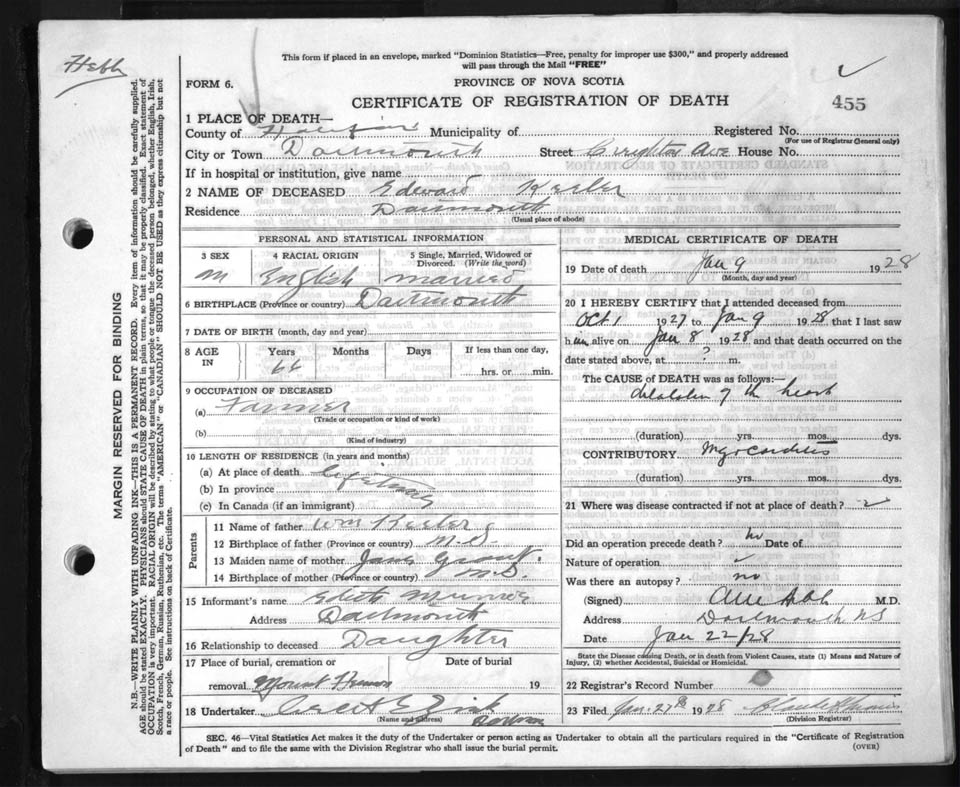 This form if placed in an envelope, marked "Dominion Statistics—Free, penalty for improper use $300," and properly addressed
will pass through the Mail "FREE"
FORM 6.
PROVINCE OF NOVA SCOTIA
CERTIFICATE OF REGISTRATION OF DEATH
455
1 PLACE OF DEATH—
County of Halifax Municipality of Registered No.
(For use of Registrar General only)
City or Town Dartmouth Street Creighton Ave House No.
If in hospital or institution, give name
2 NAME OF DECEASED Edward Keeler
Residence Dartmouth
(Usual place of abode)
PERSONAL AND STATISTICAL INFORMATION
3 SEX 4 RACIAL ORIGIN 5 Single, Married, Widowed or Divorced. (Write the word)
M English Married
6 BIRTHPLACE (Province or country) Dartmouth
7 DATE OF BIRTH (month, day and year)
8 AGE IN Years Months Days If less than one day,
66 hrs. or min.
9 OCCUPATION OF DECEASED
(a) Farmer
(Trade or occupation or kind of work)
(b)
(Kind of industry)
10 LENGTH OF RESIDENCE (in years and months)
(a) At place of death Lifetime
(b) In province
(c) In Canada (if an immigrant)
Parents
11 Name of father Wm Keeler
12 Birthplace of father (Province or country) N.S.
13 Maiden name of mother Jane Grant
14 Birthplace of mother (Province or country) N.S.
15 Informant's name Edith Munroe
Address Dartmouth
16 Relationship to deceased Daughter
17 Place of burial, cremation or Date of burial
removal Mount Hermon 19
18 Undertaker
(Name and address)
MEDICAL CERTIFICATE OF DEATH
19 Date of death Jan 9 1928
(Month, day and year)
20 I HEREBY CERTIFY that I attended deceased from
Oct 1 1927 to Jan 9 1928 that I last saw
him alive on Jan 8 1928 and that death occurred on the
date stated above, at ? m.
The CAUSE OF DEATH was as follows:—
dilatation of th heart
(duration) yrs. mos. dys.
CONTRIBUTORY Myocarditis
(duration) yrs. mos. dys.
21 Where was disease contracted if not at place of death?
Did an operation precede death? no Date of
Nature of operation
Was there an autopsy? no
(Signed) M.D.
Address Dartmouth NS
Date Jan 22/28
State the Disease causing Death, or in death from Violent Causes, state (1) Means and Nature of
Injury, (2) whether Accidental, Suicidal or Homicidal.
22 Registrar's Record Number
23 Filed Jan. 27th 1928
(Division Registrar)
SEC. 46—Vital Statistics Act makes it the duty of the Undertaker or person acting as Undertaker to obtain all the particulars required in the "Certificate of Registration
of Death" and to file the same with the Division Registrar who shall issue the burial permit.
(OVER)
MARGIN RESERVED FOR BINDING
N.B.—WRITE PLAINLY WITH UNFADING INK—THIS IS A PERMANENT RECORD. Every item of information should be carefully supplied.
AGE should be stated EXACTLY. PHYSICIANS should STATE CAUSE OF DEATH in plain terms, so that it may be properly classified. Exact statement of
OCCUPATION is very important. RACIAL ORIGIN will be described by stating to what people or tongue the deceased person belonged, whether English, Irish,
Scotch, French, German, Russian, Ruthenian, etc. The terms "AMERICAN" or "CANADIAN" SHOULD NOT BE USED as they express citizenship but not
a race or people. See instructions on back of Certificate.